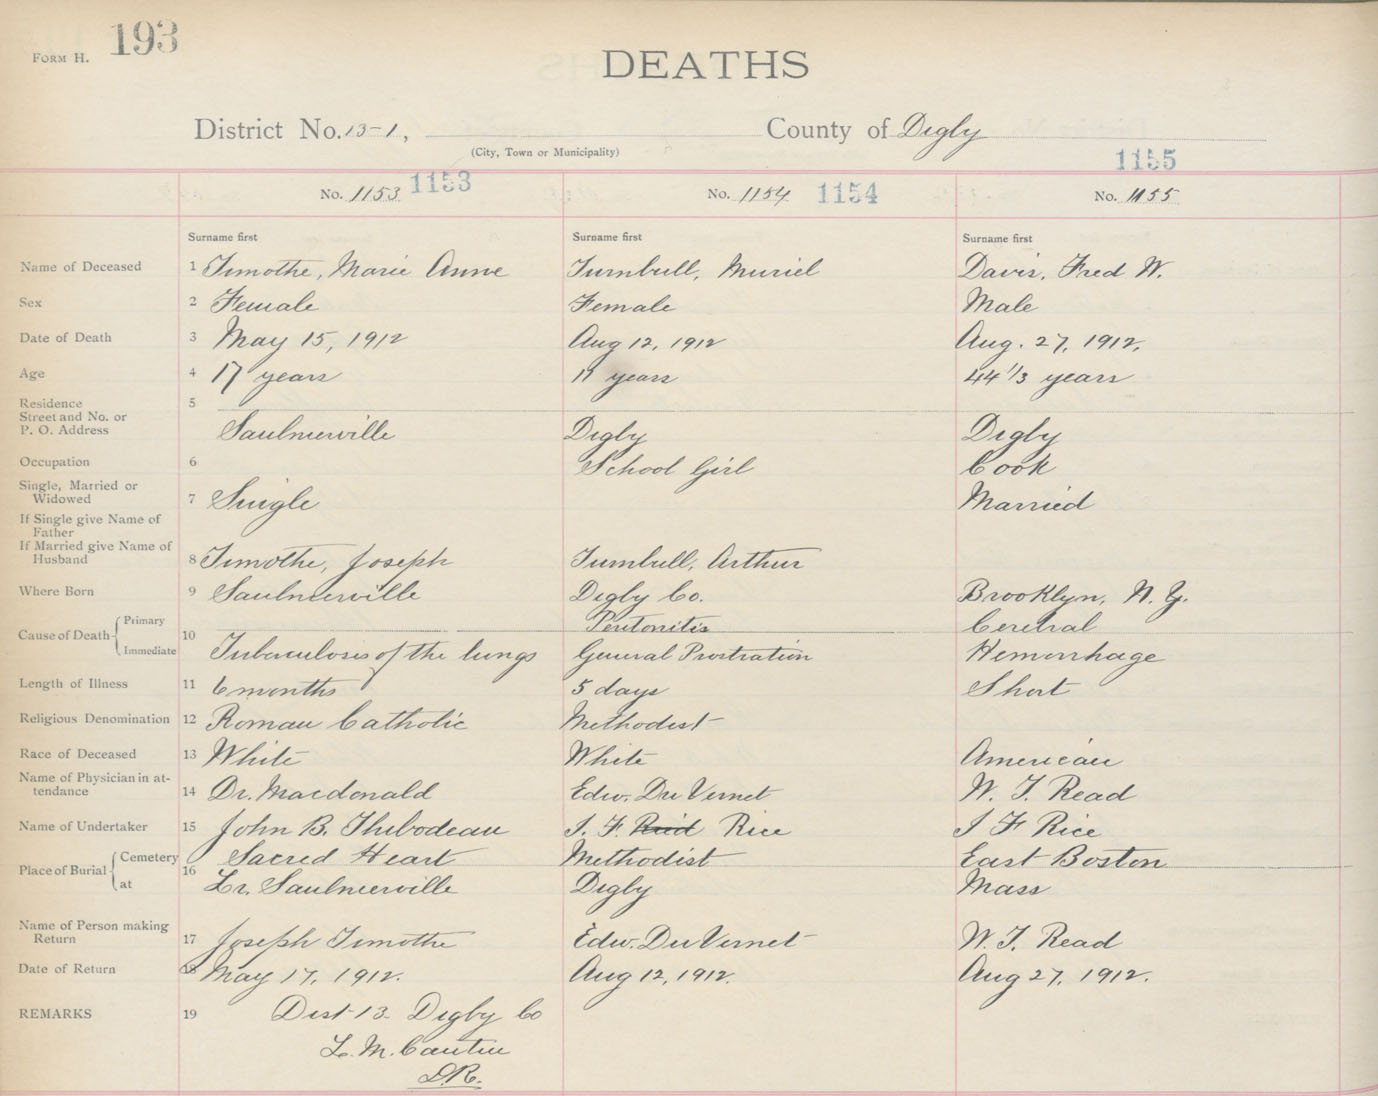 193
FORM H.
DEATHS
District No. 13-1, County of Digby
(City, Town or Municipality)
1155
No. 1153 1153 No. 1154 1154 No. 1155
Surname first Surname first Surname first
Name of Deceased 1 Timothe, Marie Anne Turnbull, Muriel Davis, Fred W.
Sex 2 Female Female Male
Date of Death 3 May 15, 1912 Aug 12, 1912 Aug. 27, 1912.
Age 4 17 years 11 years 44 1/3 years
Residence 5
Street and No. or
P. O. Address Saulnierville Digby Digby
Occupation 6 School Girl Cook
Single, Married or
Widowed 7 Single Married
If Single give Name of
Father
If Married give Name of
Husband 8 Timothe, Joseph Turnbull, Arthur
Where Born 9 Saulnierville Digby Co. Brooklyn, N. Y.
Cause of Death Primary 10 Peritonitis Cerebral
Immediate Tuberculosis of the lungs General Prostration Hemorrhage
Length of Illness 11 6 months 5 days Short
Religious Denomination 12 Roman Catholic Methodist
Race of Deceased 13 White White American
Name of Physician in at-
tendance 14 Dr. Macdonald Edw. Du Vernet W. F. Read
Name of Undertaker 15 John B. Thibodeau J. F. Reid Rice J F Rice
Place of Burial Cemetery 16 Sacred Heart Methodist East Boston
at Lr. Saulnierville Digby Mass
Name of Person making
Return 17 Joseph Timothe Edw. Du Vernet W. F. Read
Date of Return 18 May 17, 1912. Aug 12, 1912. Aug 27, 1912.
REMARKS 19 Dist 13 Digby Co
L. M.
D.R.